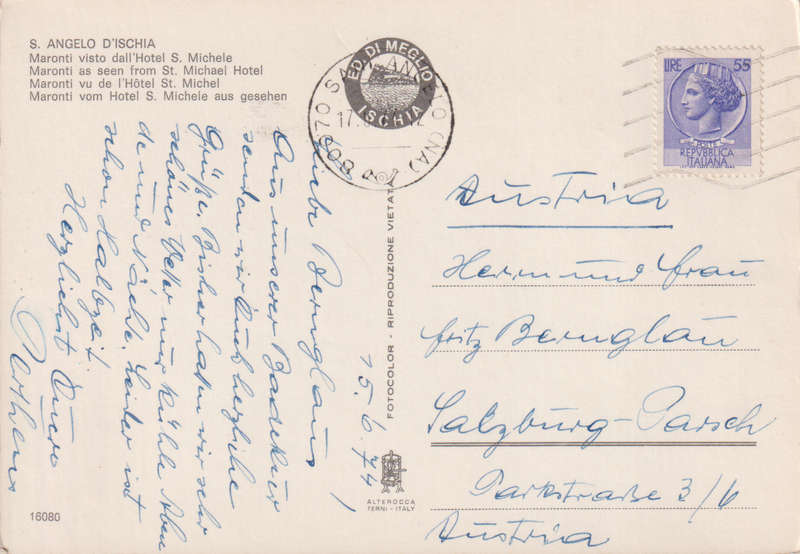 S. ANGELO D'ISCHIA
Maronti visto dall'Hotel S. Michele
Maronti as seen from St. Michael Hotel
Maronti vu de l'Hôtel St. Michel
Maronti vom Hotel S. Michele aus gesehen
ED. DI MEGLIO
ISCHIA
80070 SANT'ANGELO (NA)
LIRE 55
POSTE
REPVBBLICA
ITALIANA
15.6.74
Liebe Bernglaus!
Aus unserer Badekur
senden wir Euch herzliche
Grüße. Bisher hatten wir sehr
schönes Wetter nur kühle Aben
de und Nächte. Leider ist
schon Halbzeit.
Herzlichst Eure
Austria
Herrn und Frau
Fritz Bernglau
Salzburg-Parsch
Parkstraße 3/6
Austria
FOTOCOLOR - RIPRODUZIONE VIETATA
ALTEROCCA
TERNI - ITALY
16080